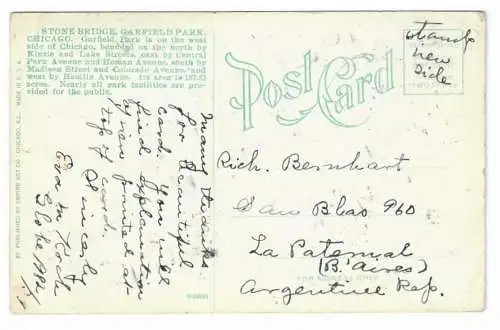 STONE BRIDGE, GARFIELD PARK,
CHICAGO. Garfield Park is on the west
side of Chicago, bounded on the north by
Kinzie and Lake Streets, east by Central
Park Avenue and Homan Avenue, south by
Madison Street and Colorado Avenue and
west by Hamlin Avenue. Its area is 187.53
acres. Nearly all park facilities are pro-
vided for the public.
Many thanks
for beautiful
card. You will
find explanation
of view printed at
top of card.
Sincerely
Eva M. Koch
Globe
PUBLISHED BY EMPIRE ART CO. CHICAGO, ILL. MADE IN U.S.A.
Post Card
stamp
view
side
Rich. Bernhart
San Blas 960
La Paternal
(B'aires)
FOR ADDRESS ONLY
Argentine Rep.